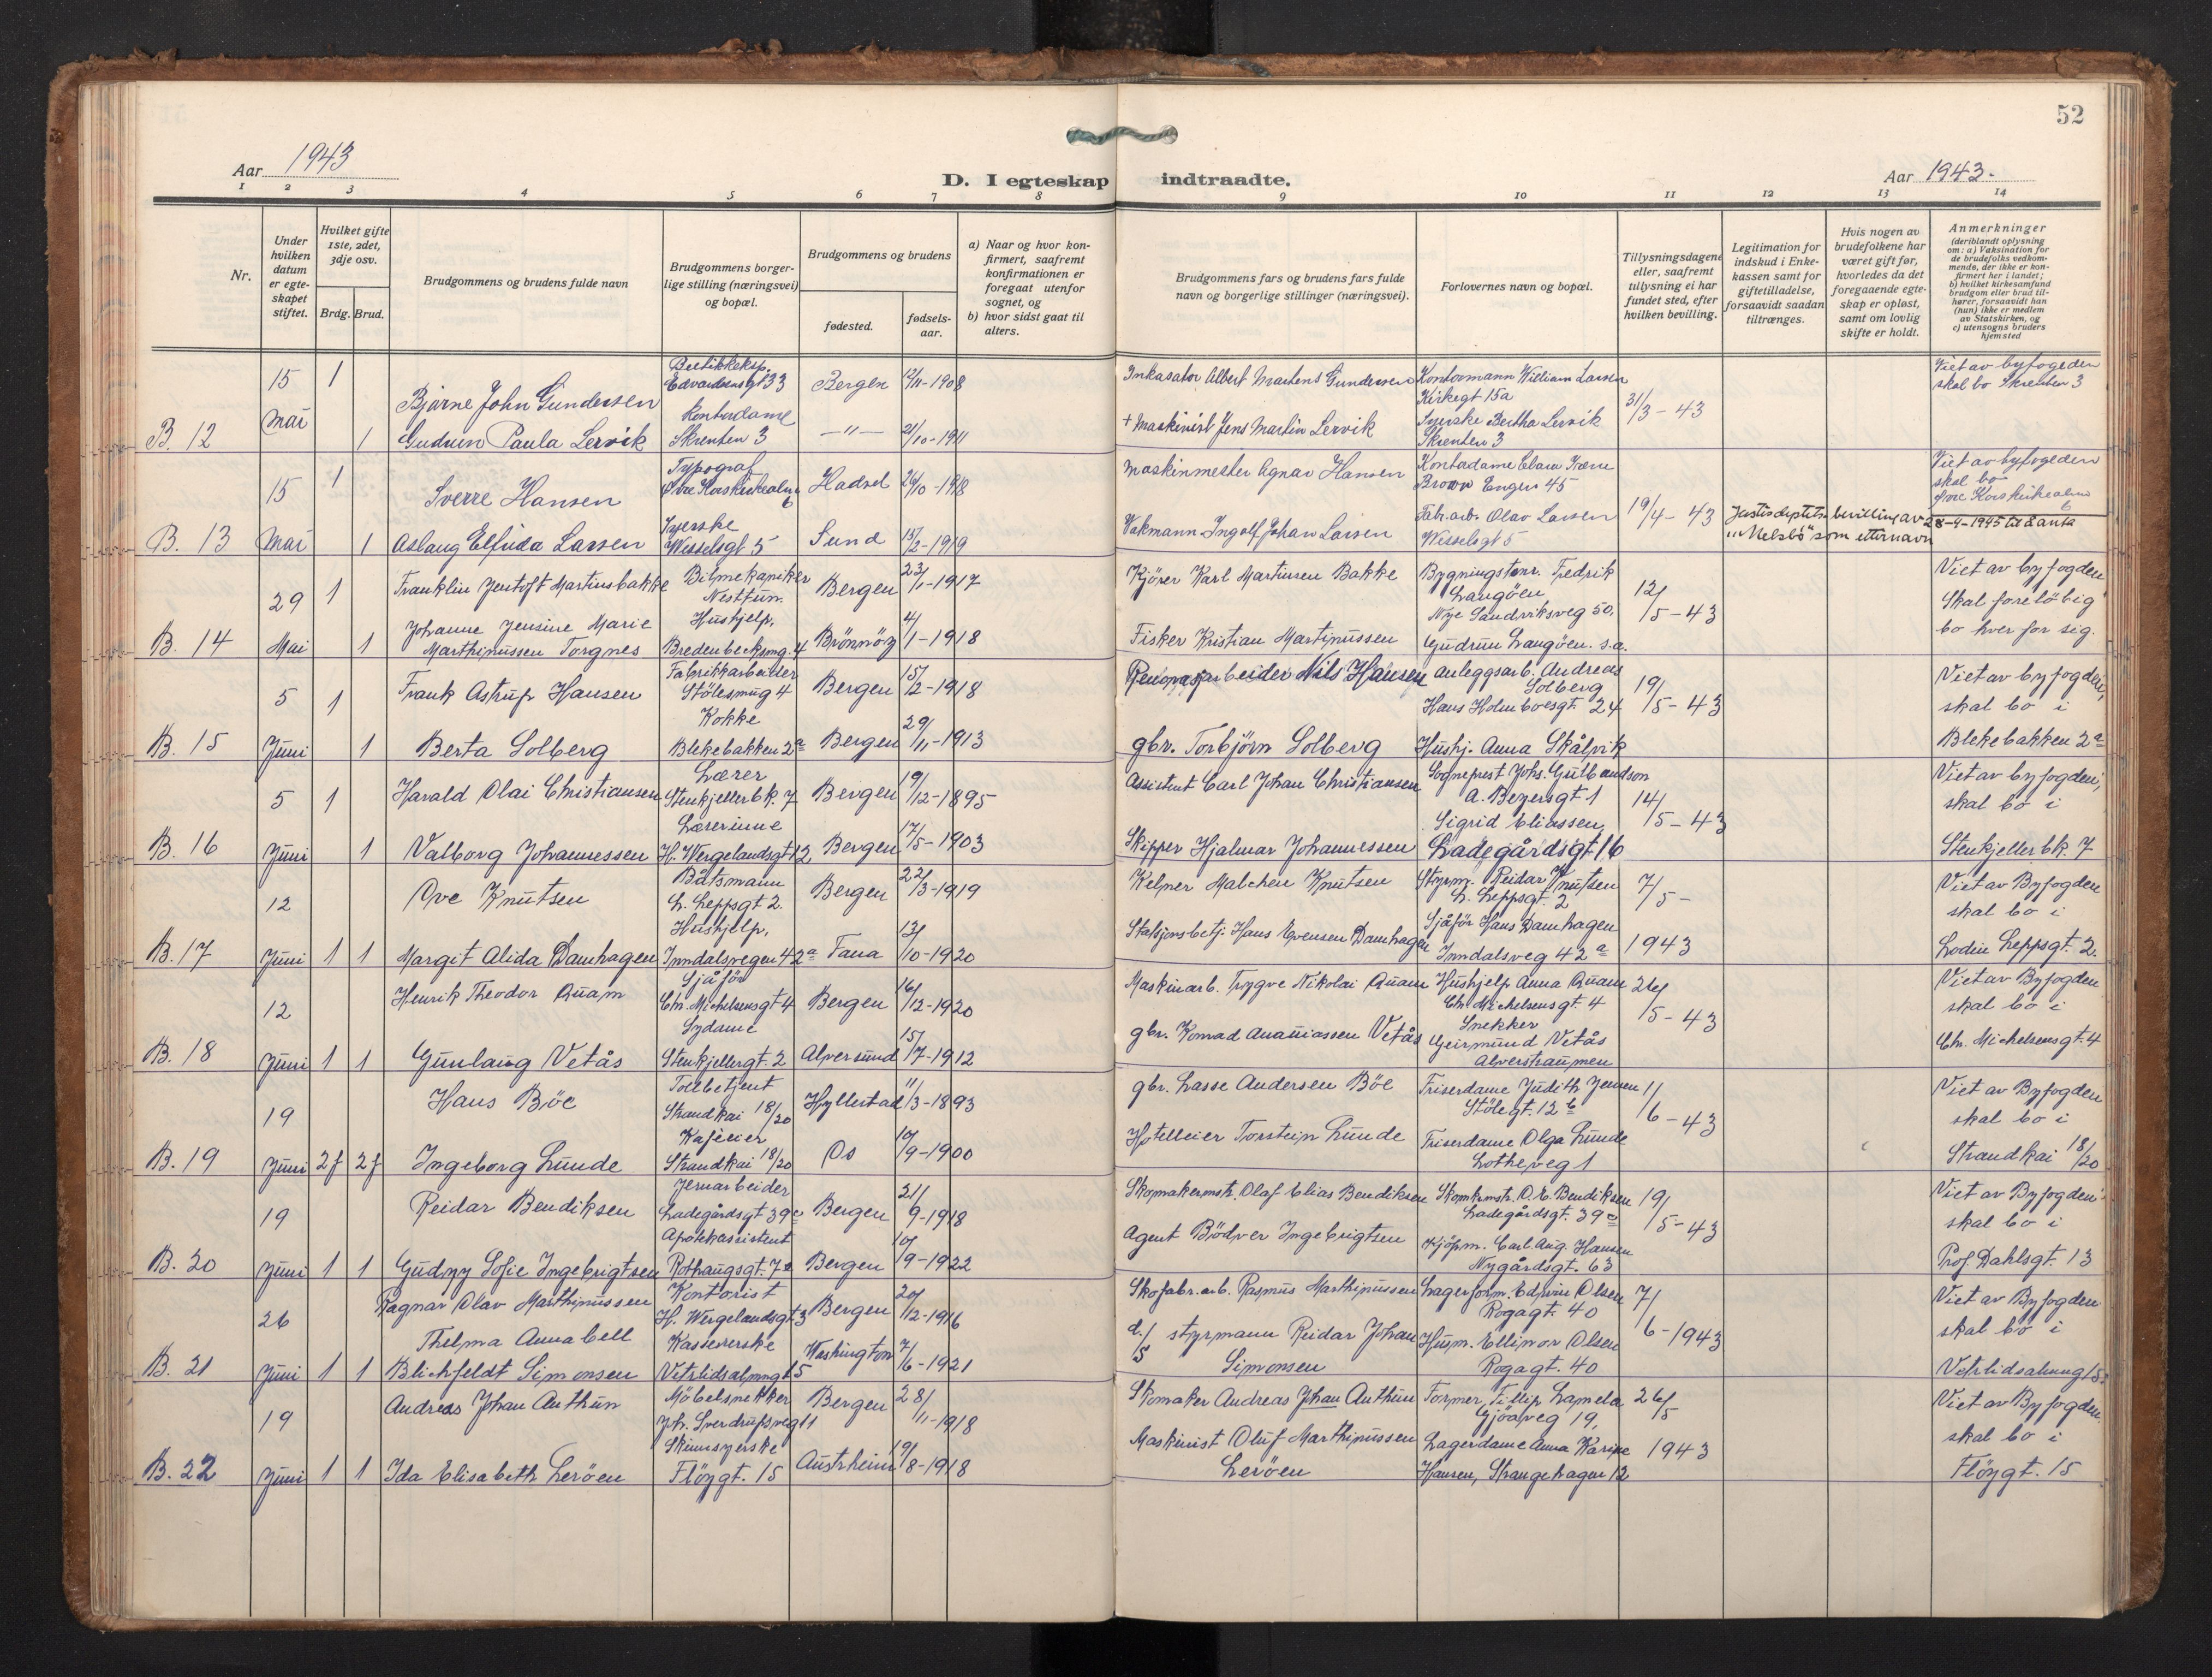 52
Aar 1943
D. I egteskap indtraadte.
Aar 1943.
1 2 3 4 5 6 7 8 9 10 11 12 13 14
Nr.
Under hvilken datum er egteskapet stiftet.
Hvilket gifte 1ste, 2det, 3dje osv.
Brdg. Brud.
Brudgommens og brudens fulde navn
Brudgommens borgerlige stilling (næringsvei) og bopæl.
Brudgommens og brudens
fødested.
fødselsaar.
a) Naar og hvor konfirmert, saafremt konfirmationen er foregaat utenfor sognet, og
b) hvor sidst gaat til alters.
Brudgommens fars og brudens fars fulde navn og borgerlige stillinger (næringsvei).
Forlovernes navn og bopæl.
Tillysningsdagene eller, saafremt tillysning ei har fundet sted, efter hvilken bevilling.
Legitimation for indskud i Enkekassen samt for giftetilladelse, forsaavidt saadan tiltrænges.
Hvis nogen av brudefolkene har været gift før, hvorledes da det foregaaende egteskap er opløst, samt om lovlig skifte er holdt.
Anmerkninger
(deriblandt oplysning om: a) Vaksination for de brudefolks vedkommende, der ikke er konfirmert her i landet;
b) hvilket kirkesamfund brudgom eller brud tilhører, forsaavidt han (hun) ikke er medlem av Statskirken, og
c) utensogns bruders hjemsted
B. 12
15 Mai
1
Bjarne John Gundersen
Butikkeksp. Edvardsensgt 33
Bergen
12/11-1908
Inkasator Albert Martens Gundersen
Kontormann William Larsen
Kirkegt 15a
31/3-43
Viet av byfogeden
skal bo Skrenten 3
1
Gudrun Paula Lervik
Kontordame
Skrenten 3
—"—
21/10-1911
+ Maskinist Jens Martin Lervik
Syerske Bertha Lervik
Skrenten 3
B. 13
15 Mai
1
Sverre Hansen
Typograf
Øvre Korskirkealm. 6
Hadsel
26/10-1918
Maskinmester Agnar Hansen
Kontordame Clara Irene
Brown Engen 45
19/4-43
Viet av byfogeden
skal bo
Øvre Korskirkealm 6
1
Aslaug Elfrida Larsen
Syerske
Wesselsgt 5
Sund
15/2-1919
Vakmann Ingolf Johan Larsen
Fabr.arb. Olav Larsen
Wesselsgt 5
Justisdeptets bevilling av 28-9-1945 til å anta
"Melsbø" som etternavn
B. 14
29 Mai
1
Franklin Jentoft Martinsbakke
Bilmekaniker
Nesttun.
Bergen
23/11-1917
Kjører Karl Martinsen Bakke
Bygningstønr. Fredrik
Langöen
Nye Sandviksveg 50.
12/5-43
Viet av byfogden
Skal foreløbig
bo hver for sig.
1
Johanne Jensine Marie
Marthinussen Torgnes
Hushjelp.
Bredenbecksmg. 4
Brönnöy
4/1-1918
Fisker Kristian Martinussen
Gudrun Langöen. s.a.
B. 15
5 Juni
1
Frank Astrup Hansen
Fabrikkarbeider
Stölesmug 4
Bergen
15/2-1918
Renovasj.arbeider Nils Hansen
Anleggsarb. Andreas
Solberg
Hans Holmboesgt. 24
19/5-43
Viet av byfogden,
skal bo i
Blekebakken 2a
1
Berta Solberg
Kokke
Blekebakken 2a
Bergen
29/11-1913
gbr. Torbjörn Solberg
Hushj. Anna Skålvik
B. 16
5 Juni
1
Harald Olai Christiansen
Lærer
Stenkjellerbk. 7
Bergen
19/12-1895
Assistent Carl Johan Christiansen
Sogneprest Johs. Gulbandson
A. Beyersgt 1
14/5-43
Viet av byfogden,
skal bo i
Stenkjellerbk. 7
1
Valborg Johannessen
Lærerinne
H. Wergelandsgt 12
Bergen
17/5-1903
Skipper Hjalmar Johannessen
Sigrid Eliassen
Ladegårdsgt 16
B. 17
12 Juni
1 1
Ove Knutsen
Båtsmann
L. Leppsgt 2.
Bergen
22/3-1919
Kelner Malchen Knutsen
Styrm. Reidar Knutsen
L. Leppsgt. 2
7/5-
1943
Viet av Byfogden
skal bo i
Lodin Leppsgt. 2.
Margit Alida Damhagen
Hushjelp,
Inndalsvegen 42a
Fana
13/10-1920
Stasjonsbetj. Hans Evensen Damhagen
Sjåför Hans Damhagen
Inndalsveg 42a
B. 18
12 Juni
1 1
Henrik Theodor Quam
Sjåför
Chr. Michelsensgt 4
Bergen
16/12-1920
Maskinarb. Trygve Nikolai Quam
Hushjelp Anna Quam
Chr. Michelsensgt. 4
26/5-43
Viet av Byfogden
skal bo i
Chr. Michelsensgt. 4
Gunlaug Vetås
Sydame
Stenkjellergt. 2
Alversund
15/7-1912
gbr. Konrad Ananiassen Vetås
Snekker
Geirmund Vetås
Alverstraumen
B. 19
19 Juni
2f 2f
Hans Böe
Tollbetjent
Strandkai 18/20
Hyllestad
11/3-1893
gbr. Lasse Andersen Böe
Friserdame Judith Jensen
Stölegt. 12b
11/6-43
Viet av Byfogden
skal bo i
Strandkai 18/20
Ingeborg Lunde
Kafeeier
Strandkai 18/20
Os
10/9-1900
Hotelleier Torstein Lunde
Friserdame Olga Lunde
Lotheveg 1
B. 20
19 Juni
1 1
Reidar Bendiksen
Jernarbeider
Ladegårdsgt 39c
Bergen
21/9-1918
Skomakermstr. Olaf Elias Bendiksen
Skomkrmstr. O. E. Bendiksen
Ladegårdsgt. 39c
19/5-43
Viet av Byfogden
skal bo i
Prof. Dahlsgt. 13
Gudny Sofie Ingebrigtsen
Apotekassistent
Rothaugsgt. 7a
Bergen
10/9-1922
Agent Bödver Ingebrigtsen
Kjöpm. Carl. Aug. Hansen
Nygårdsgt. 63
B. 21
26 Juni
1 1
Ragnar Olav Marthinussen
Kontorist
H. Wergelandsgt 3
Bergen
20/12-1916
Skofabr.arb. Rasmus Marthinussen
Lagerform. Edvin Olsen
Rogagt. 40
7/6-1943
Viet av Byfogden
skal bo i
Vetrlidsalmng 15.
Thelma Annabell
Blichfeldt Simonsen
Kassererske
Vetrlidsalmngt 5
Washington
7/6-1921
d/s styrmann Reidar Johan
Simonsen
Husm. Ellinor Olsen
Rogagt. 40
B. 22
19 Juni
1 1
Andreas Johan Anthun
Möbelsnekker
Joh. Sverdrupsveg 11
Bergen
28/11-1918
Skomaker Andreas Johan Anthun
Former Fillip Lamela
Gjöaveg 19,
26/5
1943
Viet av Byfogden
skal bo i
Flöygt. 15
Ida Elisabeth Leröen
Skinnsyerske
Flöygt. 15
Austrheim
19/8-1918
Maskinist Oluf Marthinussen
Leröen
Lagerdame Anna Karine
Hansen, Strangehagen 12